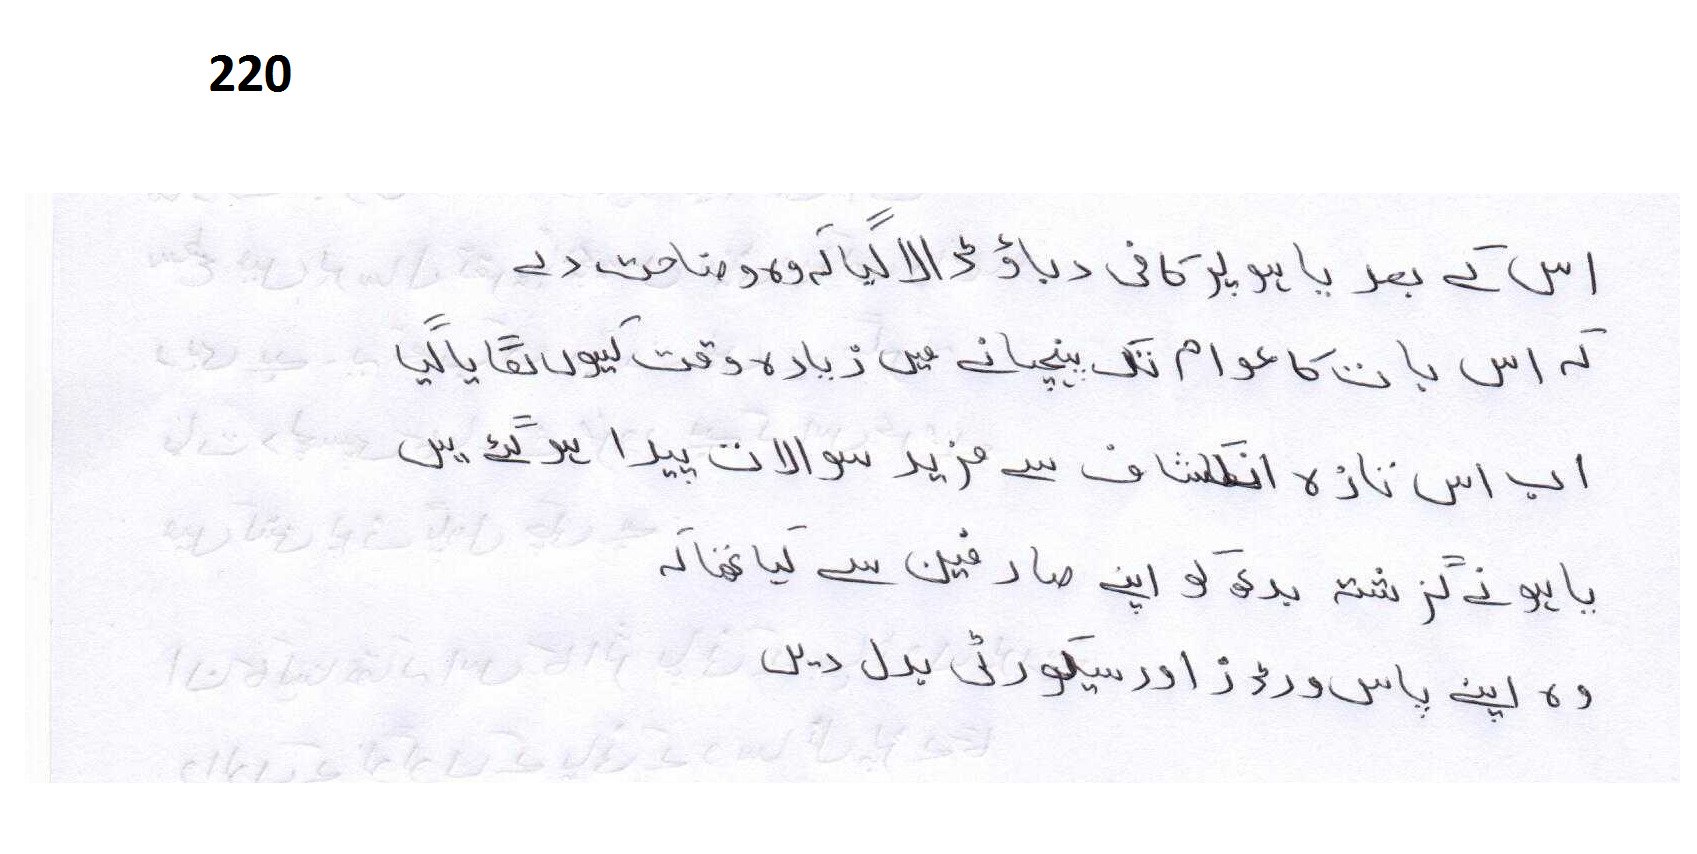 220
اس کے بعد یاہو پر کافی دباؤ ڈالا گیا کہ وہ وضاحت دے
کہ اس بات کا عوام تک پہنچانے میں زیادہ وقت کیوں لگایا گیا
اب اس تازہ انکشاف سے مزید سوالات پیدا ہو گئے ہیں
یاہو نے گزشتہ بدھ کو اپنے صارفین سے کہا تھا کہ
وہ اپنے پاس ورڈز اور سیکورٹی بدل دیں